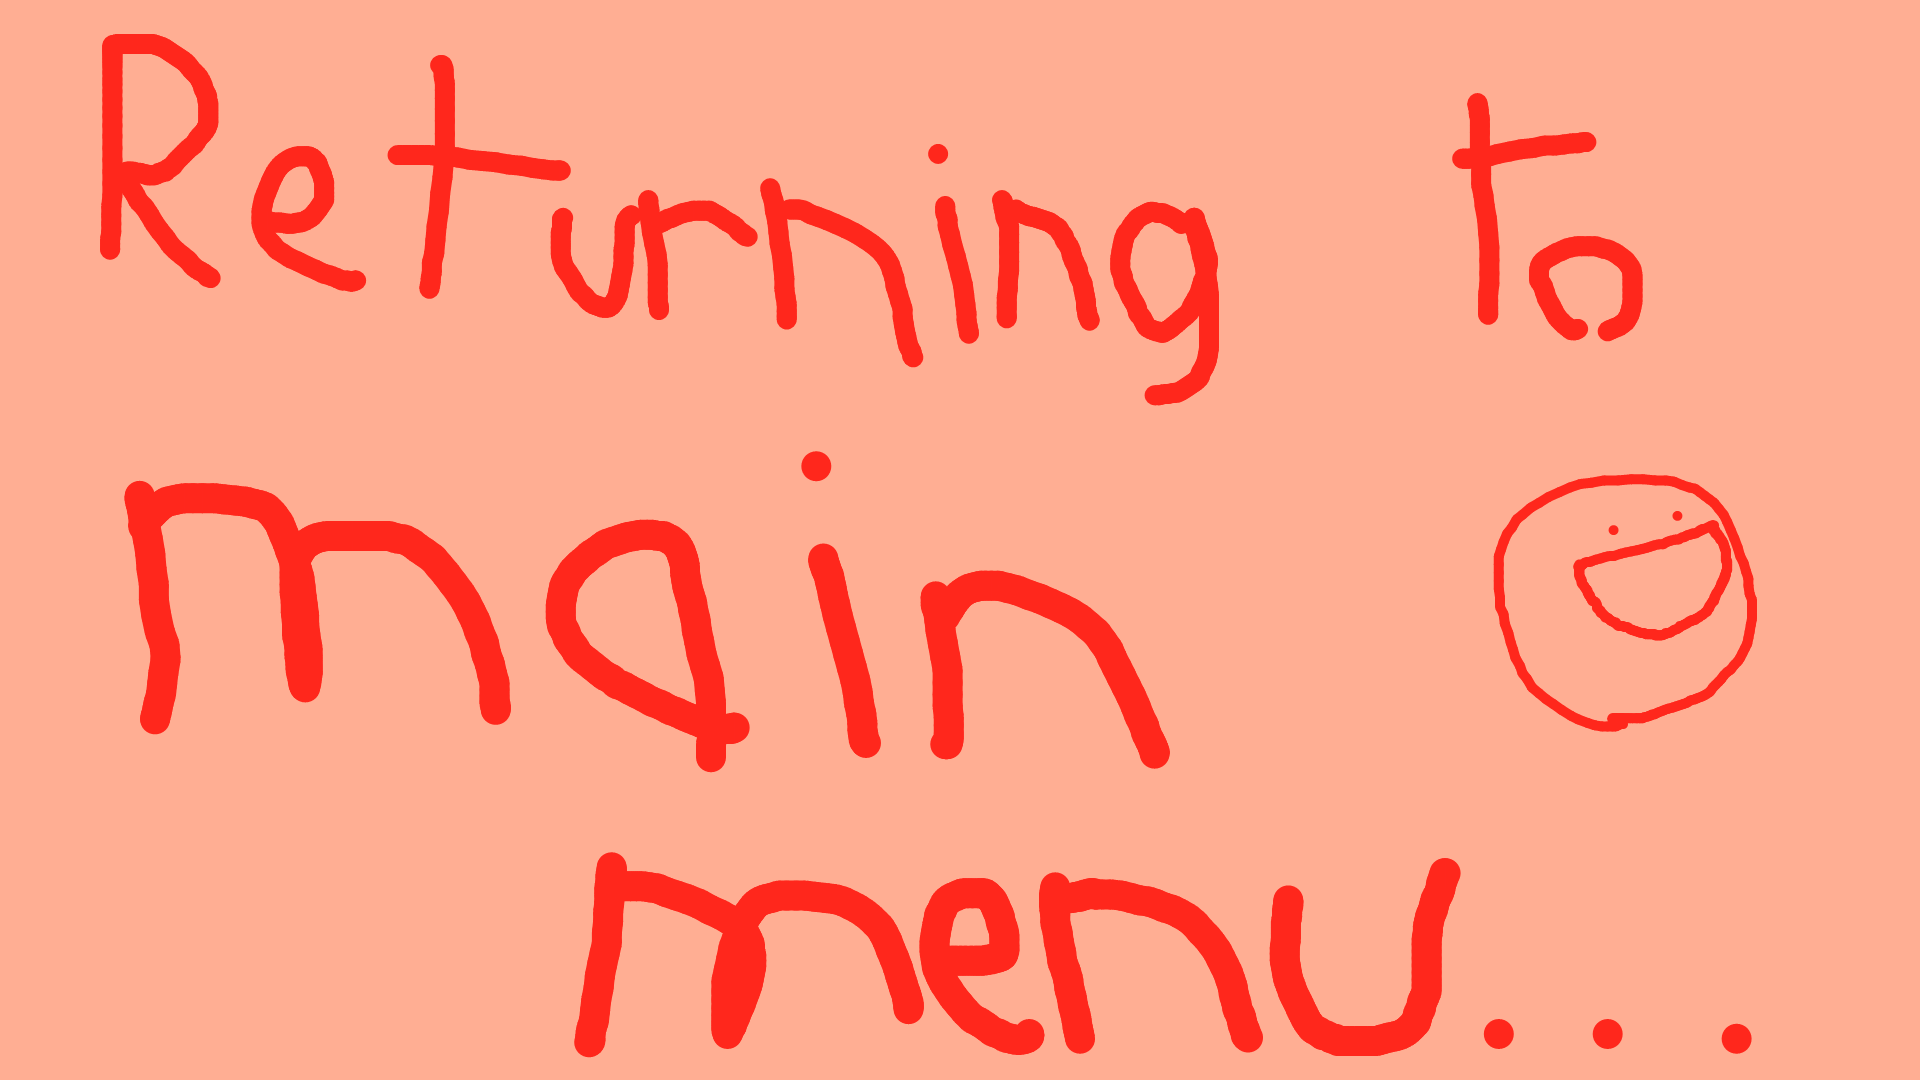 Returning to
main
menu...